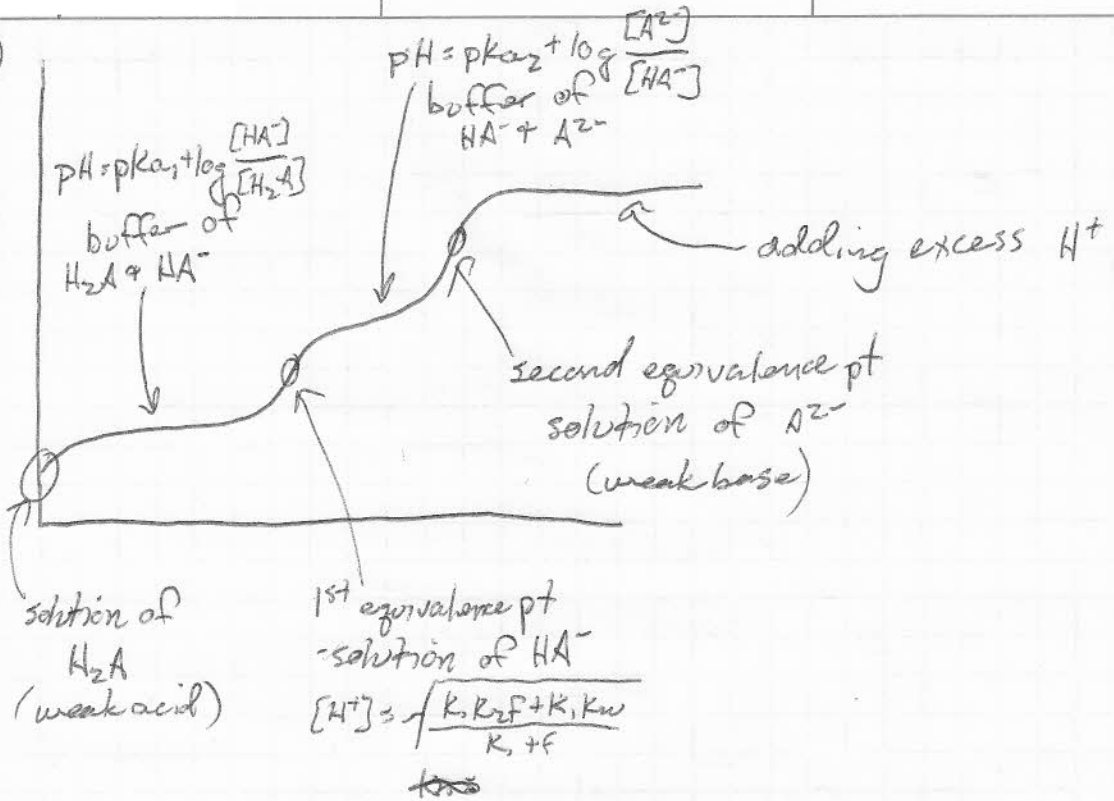 )
pH = pka₂ + log [A²⁻]/[HA⁻]
buffer of
HA⁻ + A²⁻
pH = pka₁ + log [HA⁻]/[H₂A]
buffer of
H₂A + HA⁻
adding excess H⁺
second equivalence pt
solution of A²⁻
(weak base)
solution of
H₂A
(weak acid)
1st equivalence pt
-solution of HA⁻
[H⁺] = √(K₁K₂F + K₁Kw / K₁ + F)